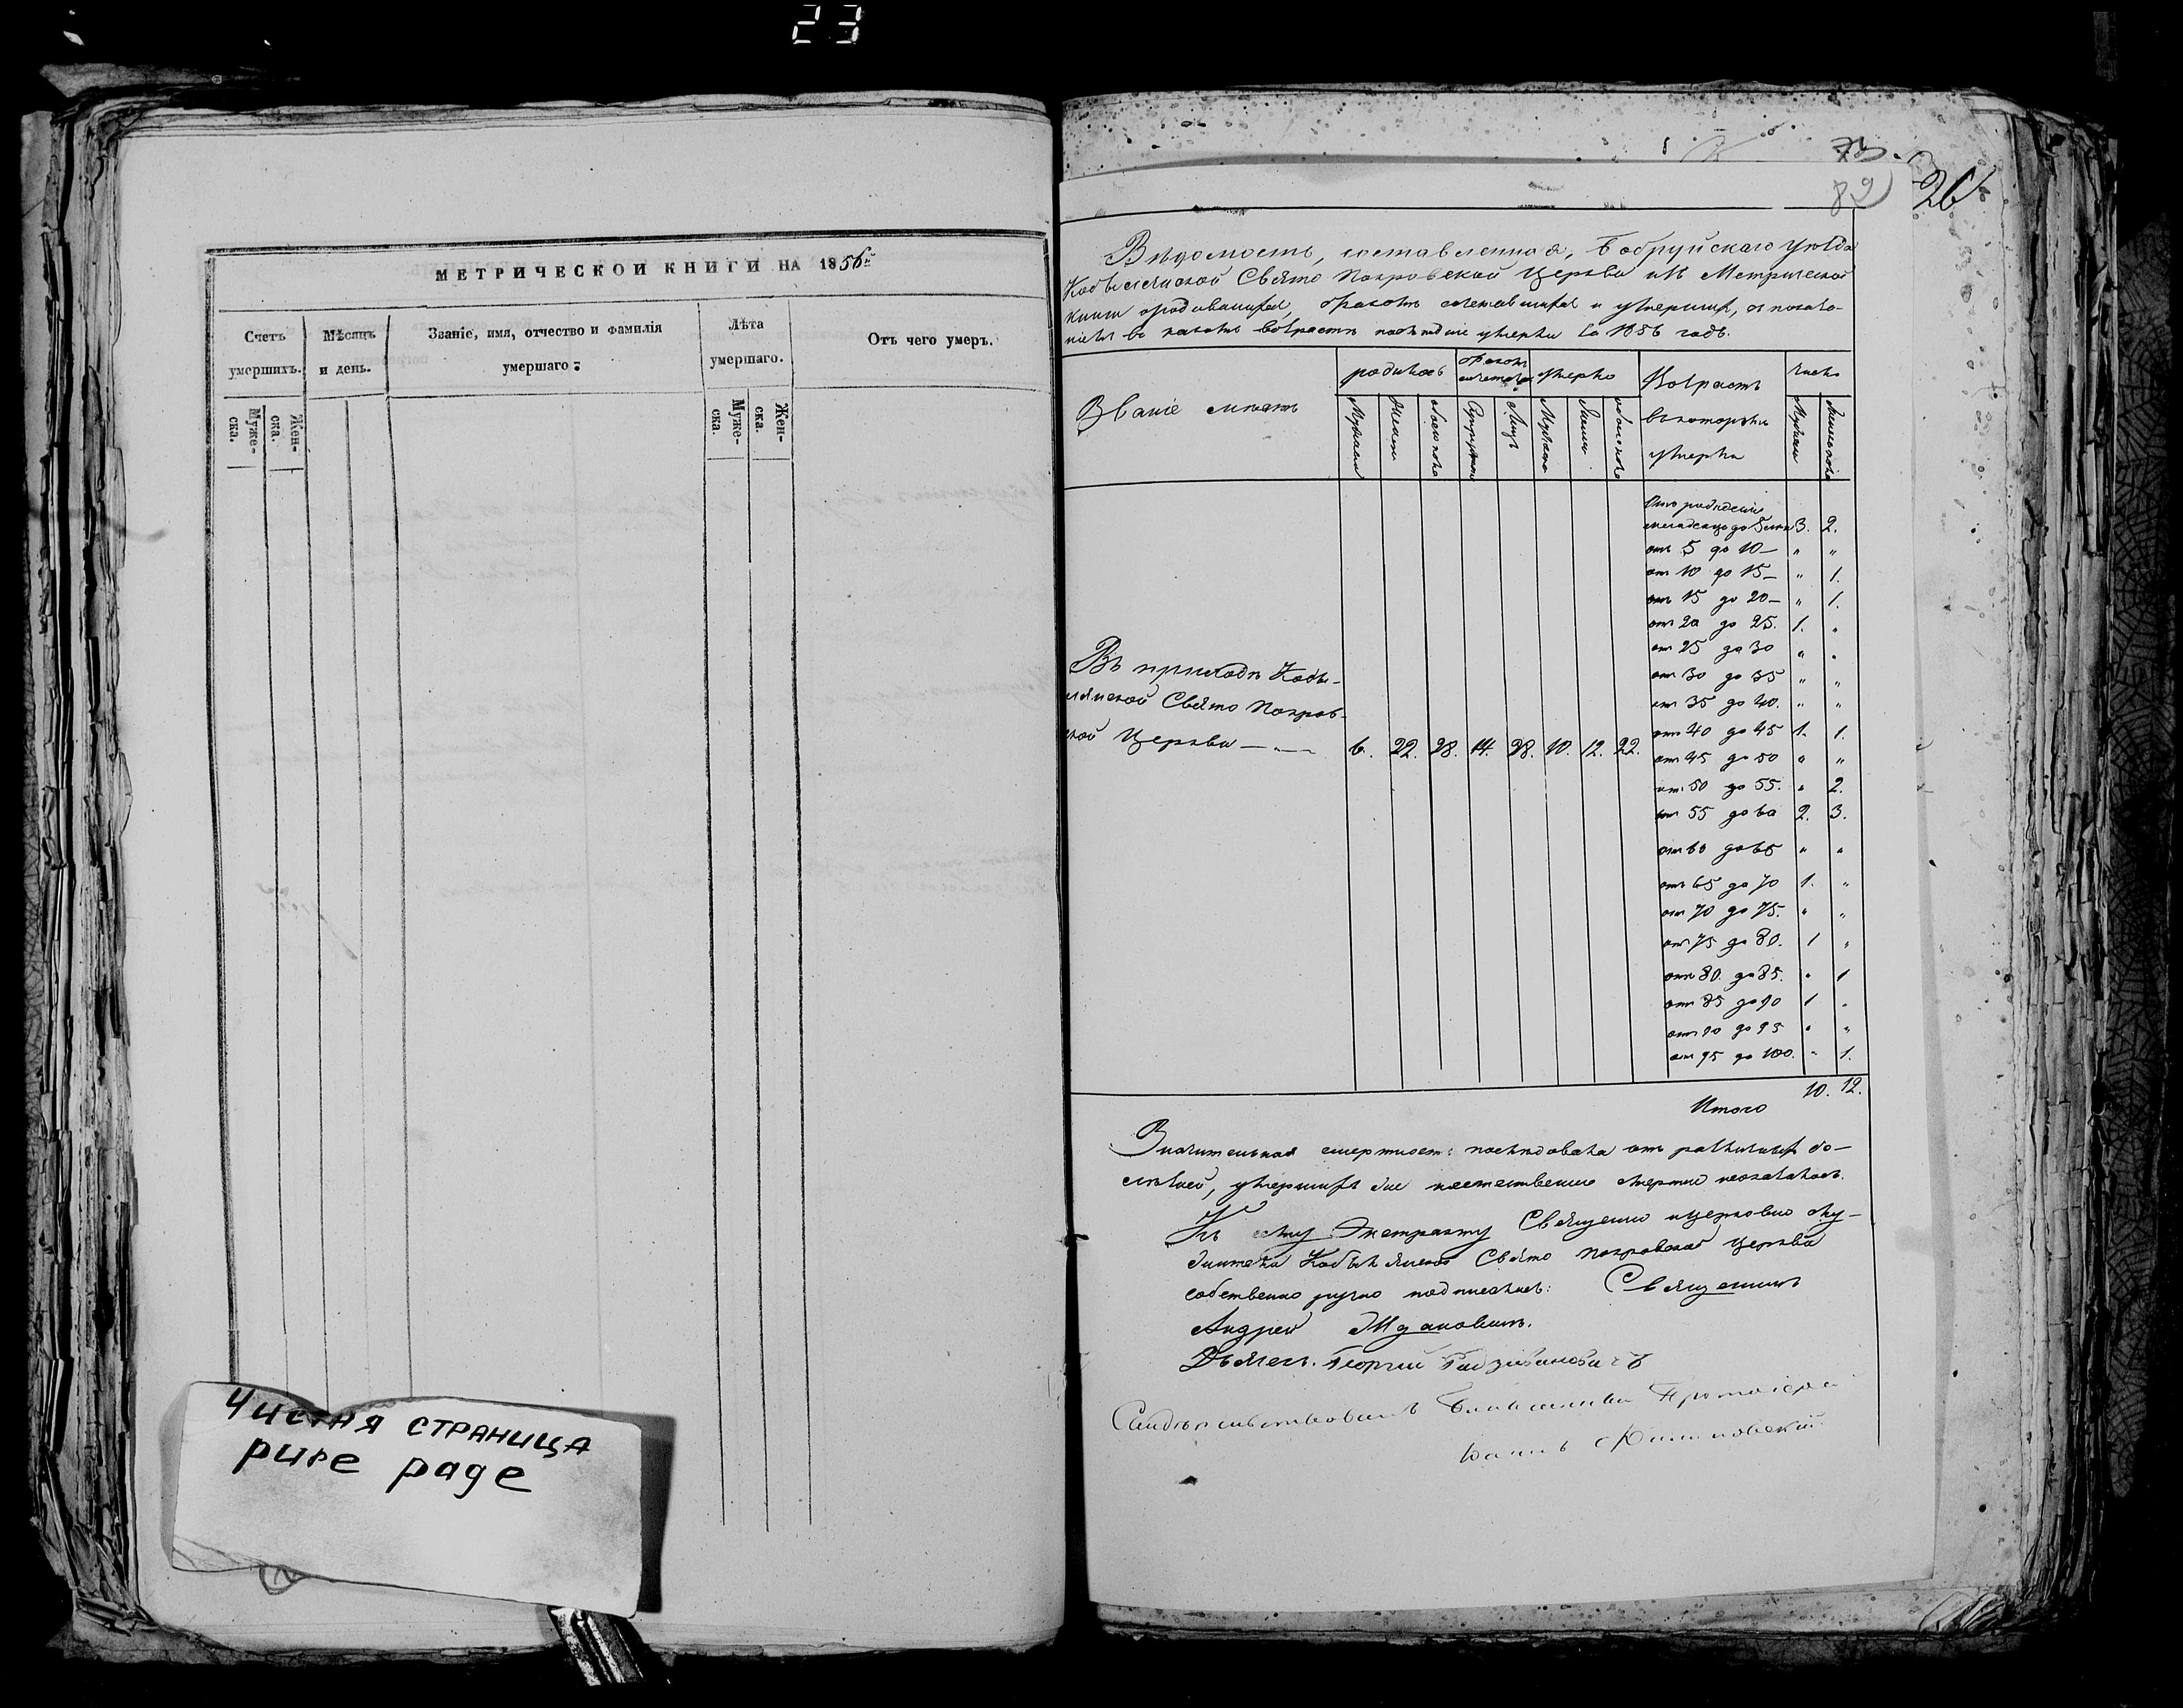 23
МЕТРИЧЕСКОЙ КНИГИ НА 1856й
Счетъ умершихъ.
Муже-
ска.
Жен-
ска.
Мѣсяцъ
и день.
Званіе, имя, отчество и фамилія
умершаго:
Лѣта
умершаго.
Муже-
ска.
Жен-
ска.
Отъ чего умеръ.
Чистая страница
pure page
73.
82
26
Вѣдомость, составленная, Бобруйскаго Уѣзда
Свято Покровской Церкви изъ Метрической
книги
въ какомъ возрастѣ послѣдніе умерли за 1856 годъ.
Званіе мѣстъ
родилось
бракомъ
сочеталось
умерло
Возрастъ
въ которомъ
умерли
число
Въ приходѣ Кобы-
лянской Свято Покров-
ской Церкви
6. 22. 28. 14. 28. 10. 12. 22.
Отъ рожденія
до 5 3. 2.
отъ 5 до 10 " "
отъ 10 до 15 " 1.
отъ 15 до 20 " 1.
отъ 20 до 25. 1. "
отъ 25 до 30 " "
отъ 30 до 35 " "
отъ 35 до 40. " "
отъ 40 до 45 1. 1.
отъ 45 до 50 " "
отъ 50 до 55. " 2.
отъ 55 до 60 2. 3.
отъ 60 до 65 " "
отъ 65 до 70 1. "
отъ 70 до 75. " "
отъ 75 до 80. 1 "
отъ 80. до 85. " 1
отъ 85 до 90 1 "
отъ 90 до 95 " "
отъ 95 до 100. " 1.
Итого 10. 12.
Значительная смертность послѣдовала отъ различныхъ бо-
лѣзней, умершихъ же неоказалось.
Къ сему Экстракту Священно и церковно слу-
жители Свято Покровской Церкви
собственно ручно подписались: Священникъ
Андрей
Дьячекъ. Георгій
Свидѣтельствовалъ Благочинный Протоіерей